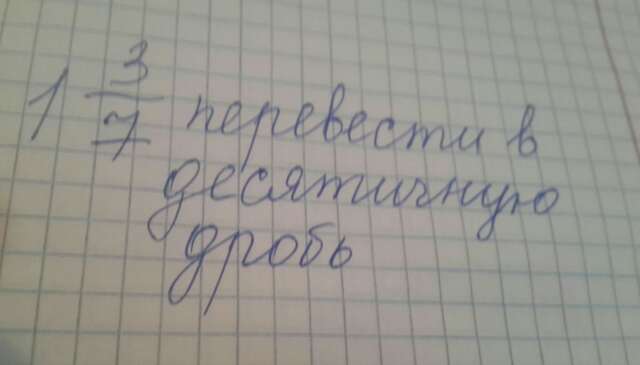 1 3/7 перевести в
десятичную
дробь